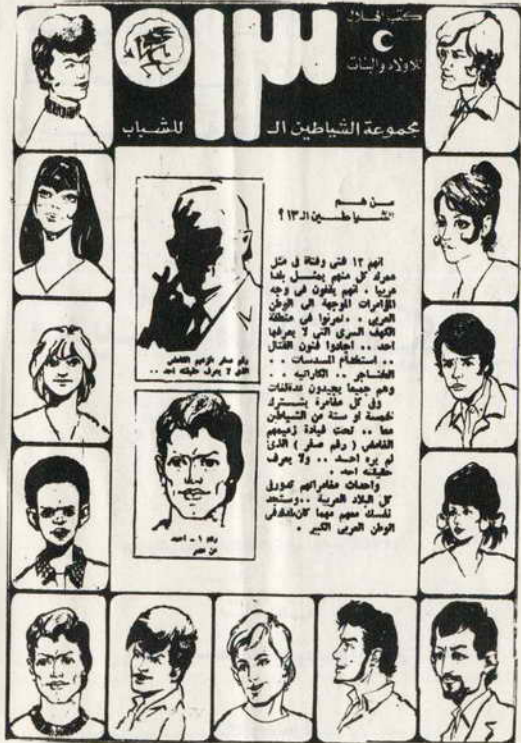 كتب الهلال
للاولاد والبنات
١٣
مجموعة الشياطين الـ
للشباب
من هم
الشياطين الـ ١٣ ؟
انهم ١٣ فتى وفتاة فى مثل
عمرك كل منهم يمثل بلدا
عربيا . انهم يقفون فى وجه
المؤامرات الموجهة الى الوطن
العربى . . تمرنوا فى منطقة
الكهف السرى التى لا يعرفها
احد .. اجادوا فنون القتال
.. استخدام المسدسات ..
الخناجر .. الكاراتيه ..
وهم جميعا يجيدون عدة لغات
وفى كل مغامرة يشترك
خمسة او ستة من الشياطين
معا .. تحت قيادة زعيمهم
الغامض ( رقم صفر ) الذى
لم يره احد .. ولا يعرف
حقيقته احد .
واحداث مغامراتهم تدور فى
كل البلاد العربية .. وستجد
نفسك معهم مهما كان بلدك فى
الوطن العربى الكبير .
رقم صفر الزعيم الغامض
الذى لا يعرف حقيقته احد ..
رقم ١ - احمد
من مصر